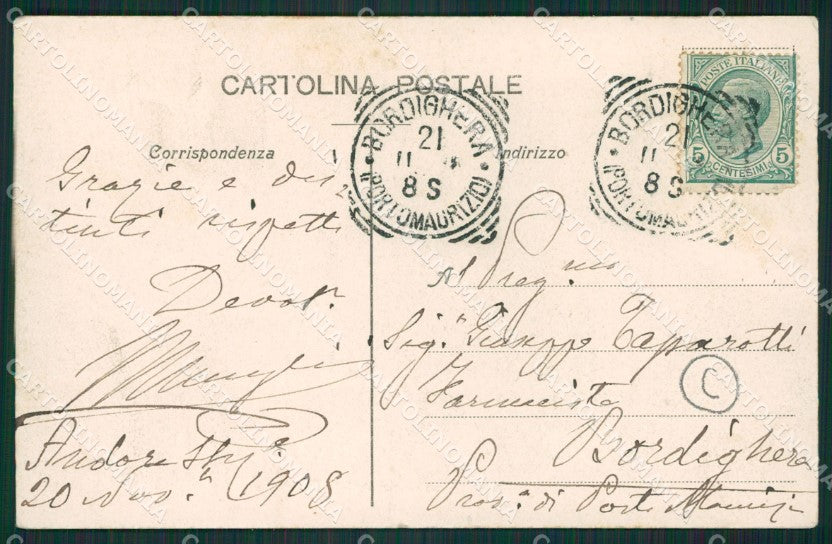 CARTOLINA POSTALE
POSTE ITALIANE
5 5
CENTESIMI
BORDIGHERA
21
11
8 S
(PORTOMAURIZIO)
BORDIGHERA
21
11
8 S
(PORTOMAURIZIO)
Corrispondenza
Indirizzo
Grazie e dis
tinti rispetti
Devot.
Al Preg.mo
Sig.r Giuseppe Taparotti
Farmacista
C
Bordighera
Prov.a di Porto Maurizio
Andora
20 Nov. 1908
CARTOLINOMANIA